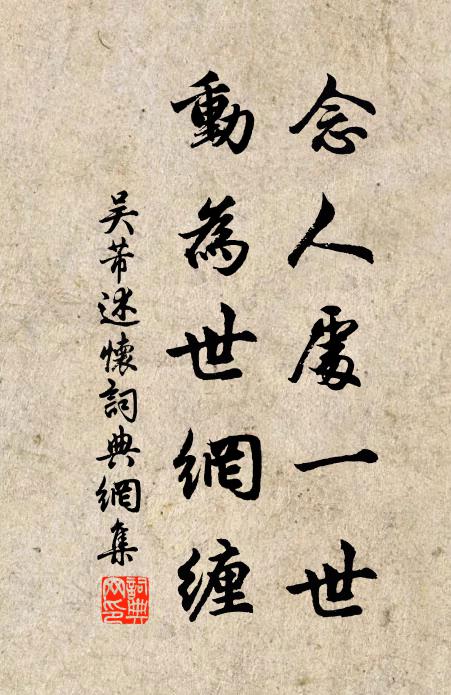 念人處一世
動為世網纏
吴芾述懷詞典網集
詞典網印